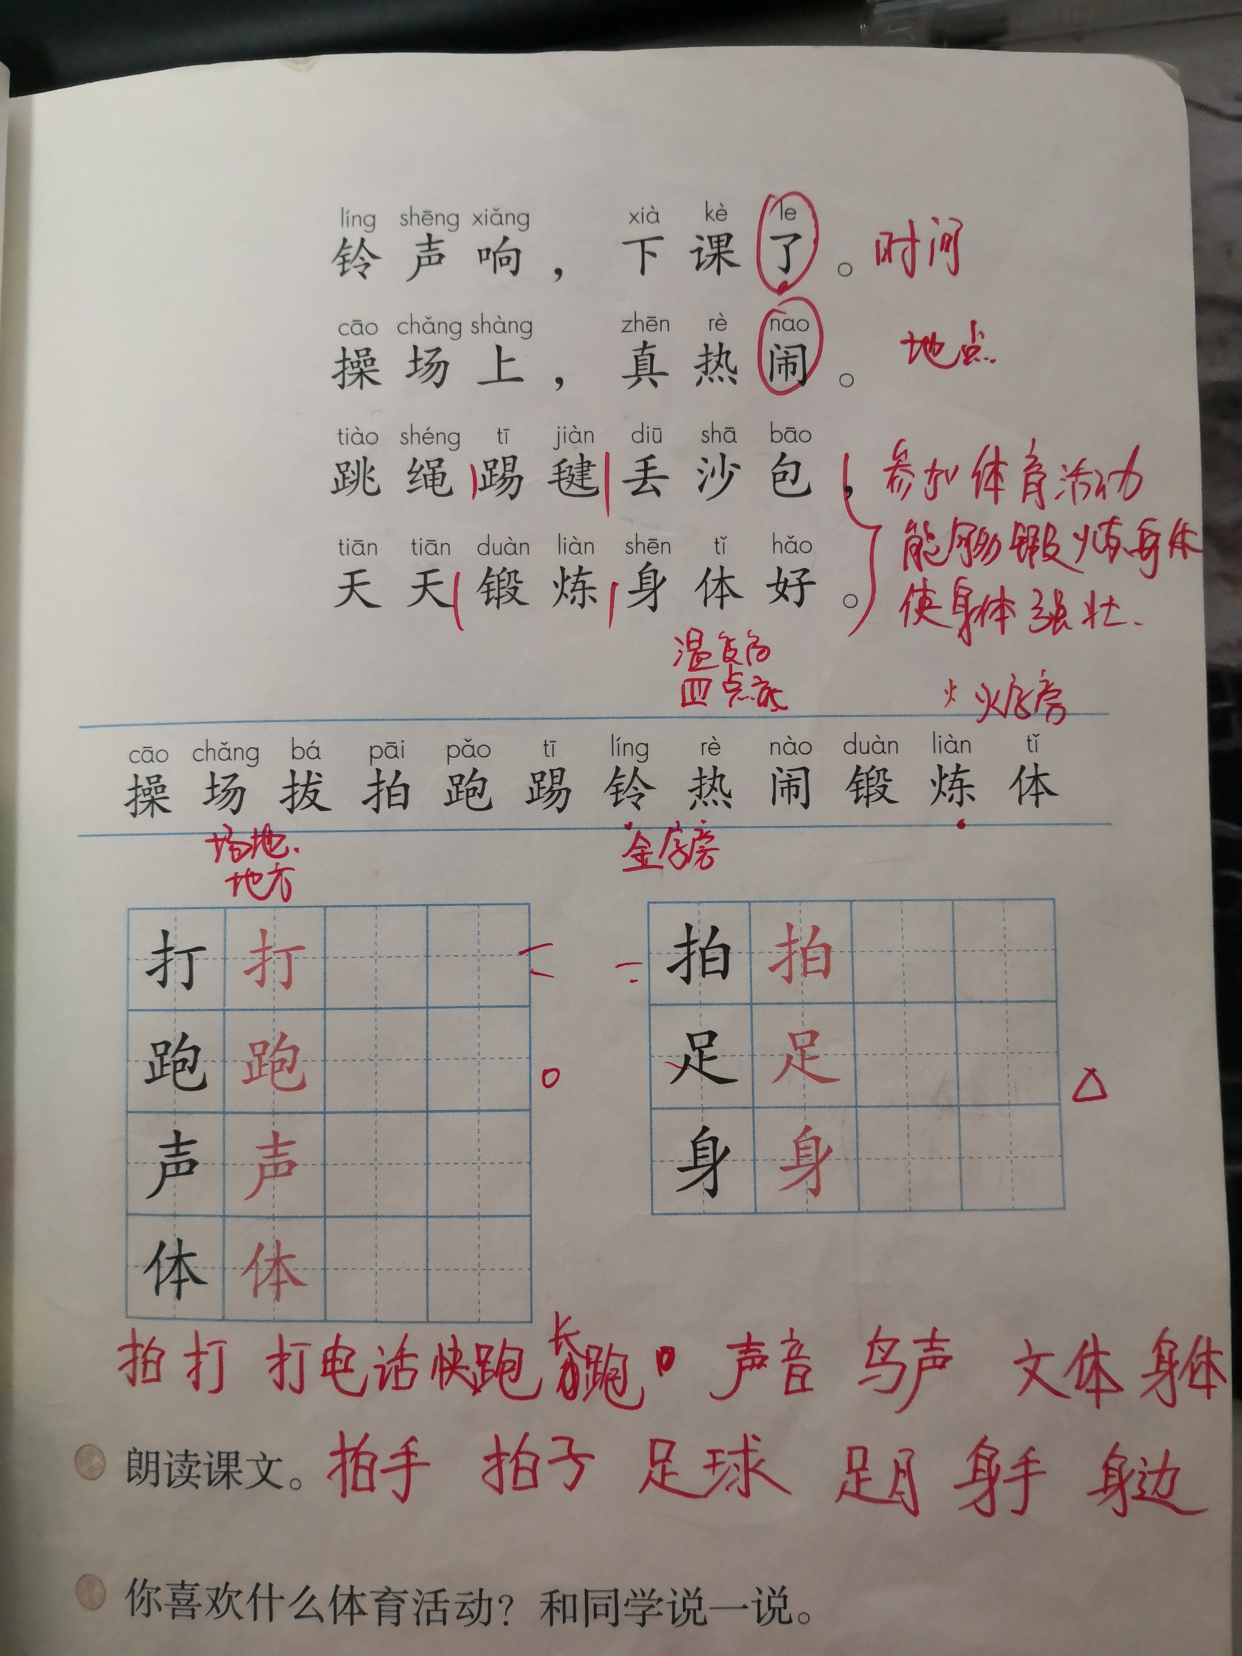 líng shēng xiǎng xià kè le
铃声响，下课了。时间
cāo chǎng shàng zhēn rè nao
操场上，真热闹。地点.
tiào shéng tī jiàn diū shā bāo
跳绳踢毽丢沙包，参加体育活动
能够锻炼身体
tiān tiān duàn liàn shēn tǐ hǎo
天天锻炼身体好。使身体强壮.
四点底
火 火字旁
cāo chǎng bá pāi pǎo tī líng rè nào duàn liàn tǐ
操场拔拍跑踢铃热闹锻炼体
场地. 金字旁
地方
打 打 拍 拍
跑 跑 足 足
声 声 身 身
体 体
拍打 打电话 快跑 长跑 声音 鸟声 文体 身体
朗读课文。拍手 拍子 足球 足月 身手 身边
你喜欢什么体育活动？和同学说一说。